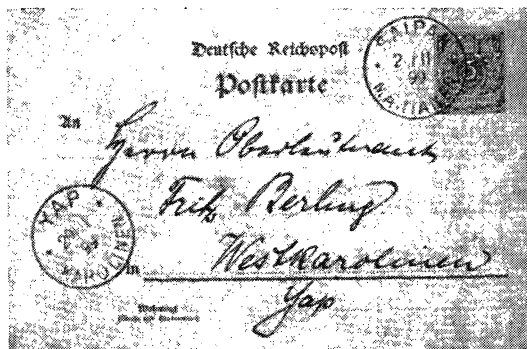 Deutsche Reichspost
Postkarte
SAIPAN
2 11
99
MARIANEN
5
An
Herrn Oberleutnant
Fritz Berling
YAP
99
KAROLINEN
in
Westkarolinen
Yap
Wohnung